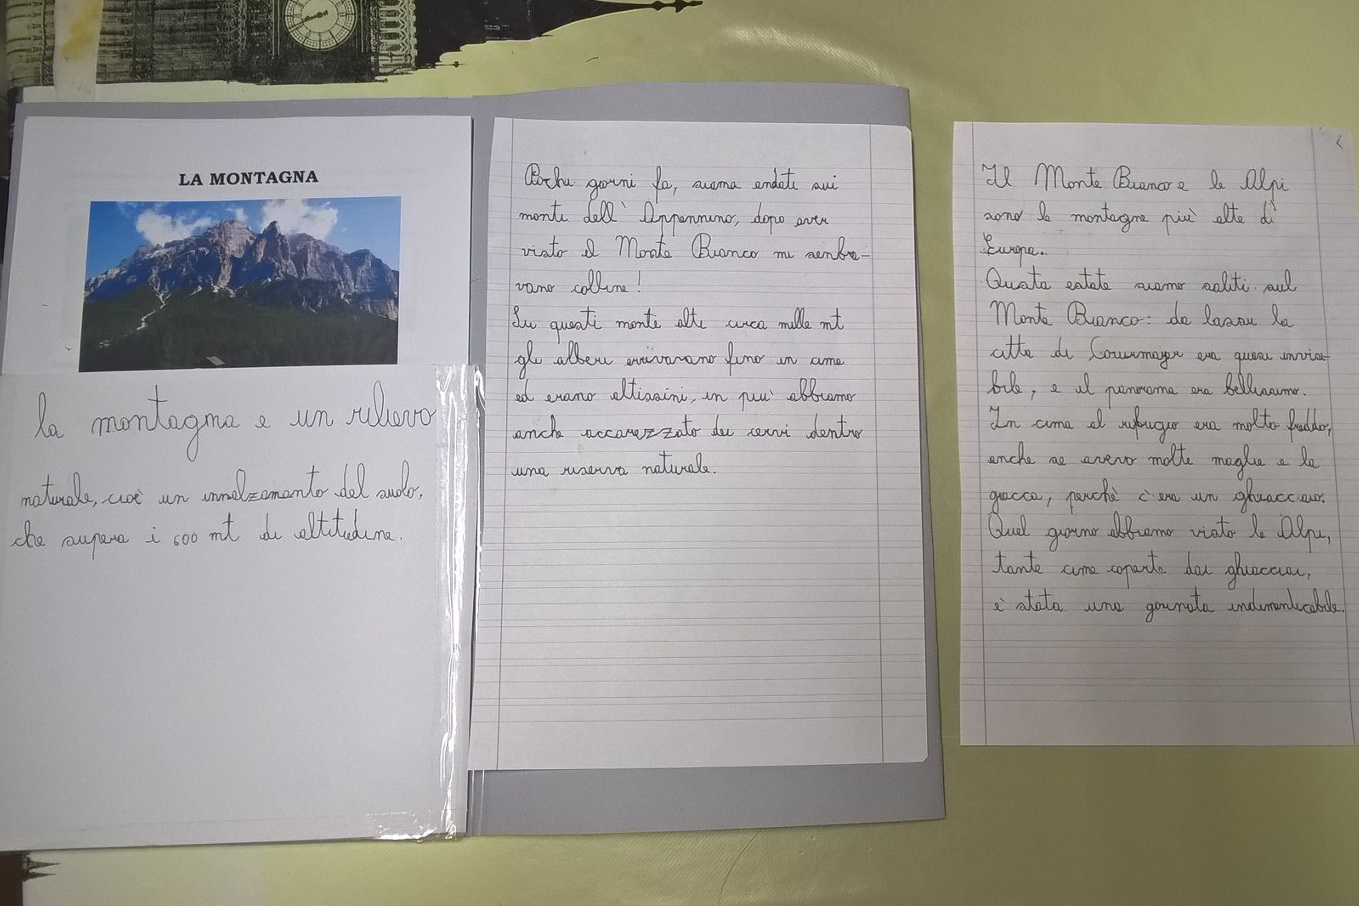 LA MONTAGNA
la montagna e un rilievo
naturale, cioè un innalzamento del suolo,
che supera i 600 mt di altitudine.
Pochi giorni fa, siamo andati sui
monti dell' Appennino, dopo aver
visto il Monte Bianco mi senbra-
vano colline!
Su questi monte alti circa mille mt
gli alberi arrivavano fino in cima
ed erano altissini, in piu' abbiamo
anche accarezzato dei cervi dentro
una riserva naturale.
Il Monte Bianco e le Alpi
sono le montagne più alte di
Europa.
Questa estate siamo saliti sul
Monte Bianco: da lassu la
citta di Courmayer era quasi invisi-
bile, e il panorama era bellissimo.
In cima al rifugio era molto freddo,
anche se avevo molte maglie e la
giacca, perchè c'era un ghiacciaio.
Quel giorno abbiamo visto le Alpi,
tante cime coperte dai ghiacciai,
è stata una giornata indimenticabile.